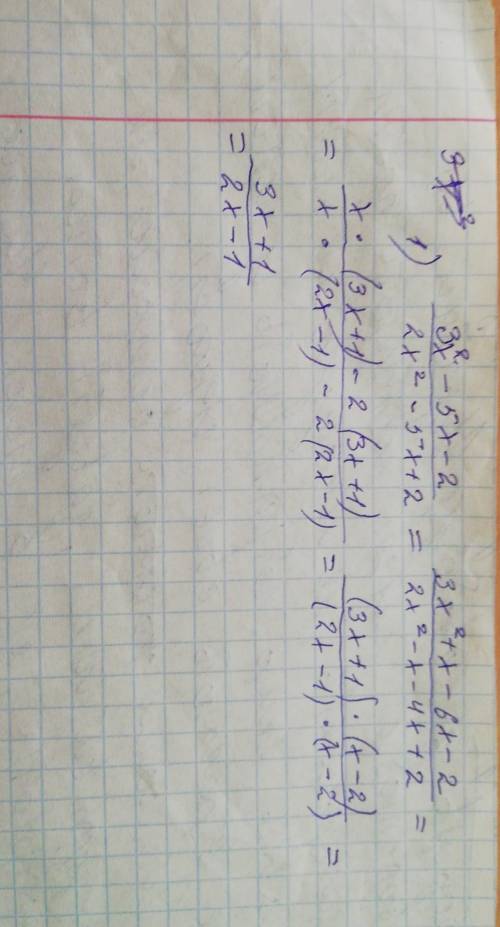 1) (3x² - 5x - 2)/(2x² - 5x + 2) = (3x² + x - 6x - 2)/(2x² - x - 4x + 2) =
= (x · (3x+1) - 2(3x+1))/(x · (2x-1) - 2(2x-1)) = ((3x+1) · (x-2))/((2x-1) · (x-2)) =
= (3x+1)/(2x-1)